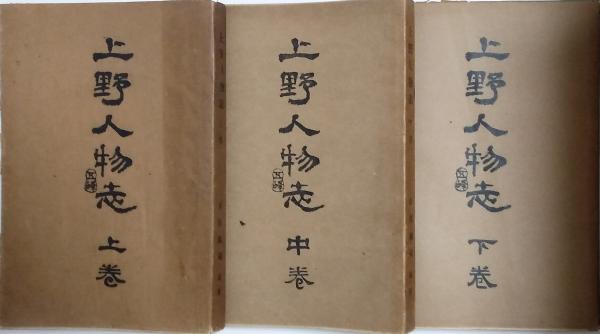 上野人物志
上卷
上野人物志
中卷
上野人物志
下卷